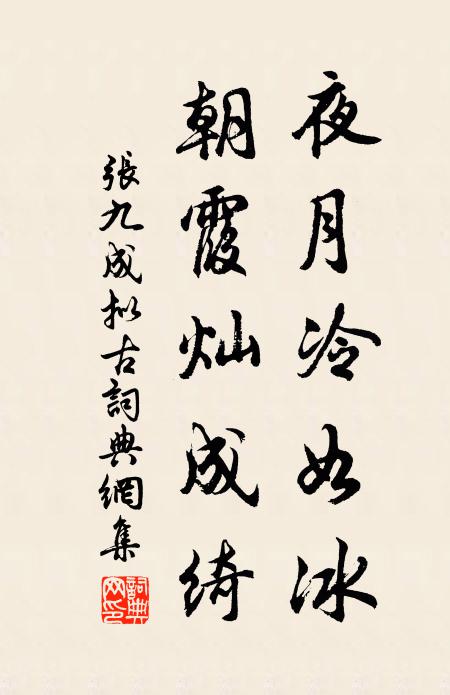 夜月冷如冰
朝霞灿成绮
張九成拟古詞典網集
詞典網印